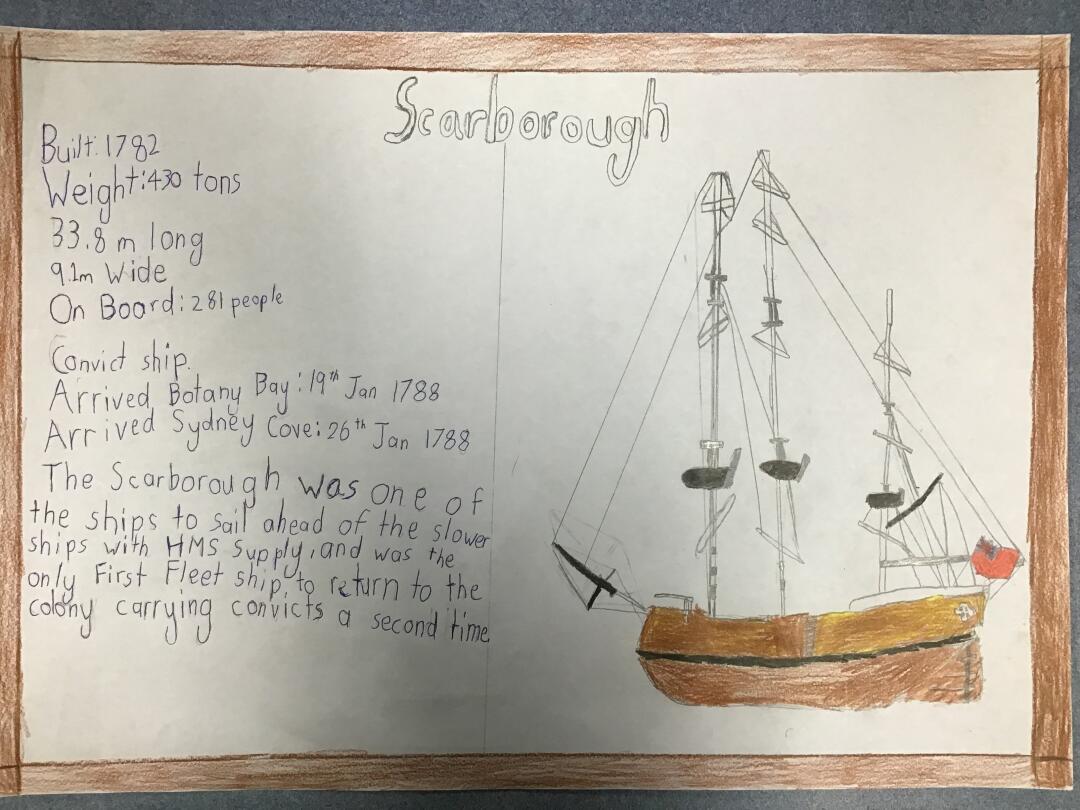 Scarborough
Built: 1782
Weight: 430 tons
33.8 m long
9.1m Wide
On Board: 281 people
Convict ship.
Arrived Botany Bay: 19th Jan 1788
Arrived Sydney Cove: 26th Jan 1788
The Scarborough was one of
the ships to sail ahead of the slower
ships with HMS Supply, and was the
only First Fleet ship, to return to the
colony carrying convicts a second time